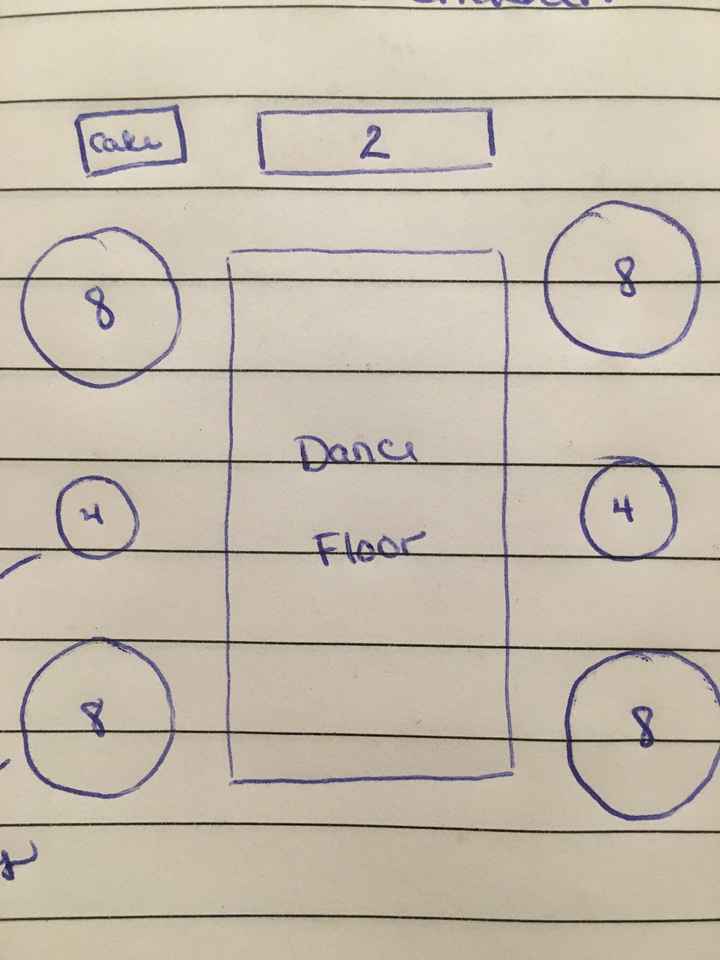 Cake
2
8
8
Dance
4
4
Floor
8
8